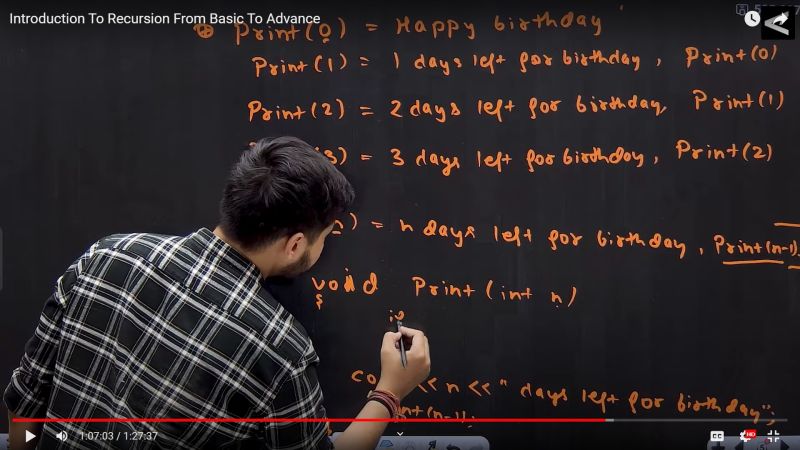 Introduction To Recursion From Basic To Advance
Print(0) = Happy birthday
Print(1) = 1 days left for birthday, Print(0)
Print(2) = 2 days left for birthday, Print(1)
3) = 3 days left for birthday, Print(2)
n) = n days left for birthday, Print(n-1)
void Print(int n)
{
<< n << " days left for birthday";
nt(n-1);
1:07:03 / 1:27:37
CC HD